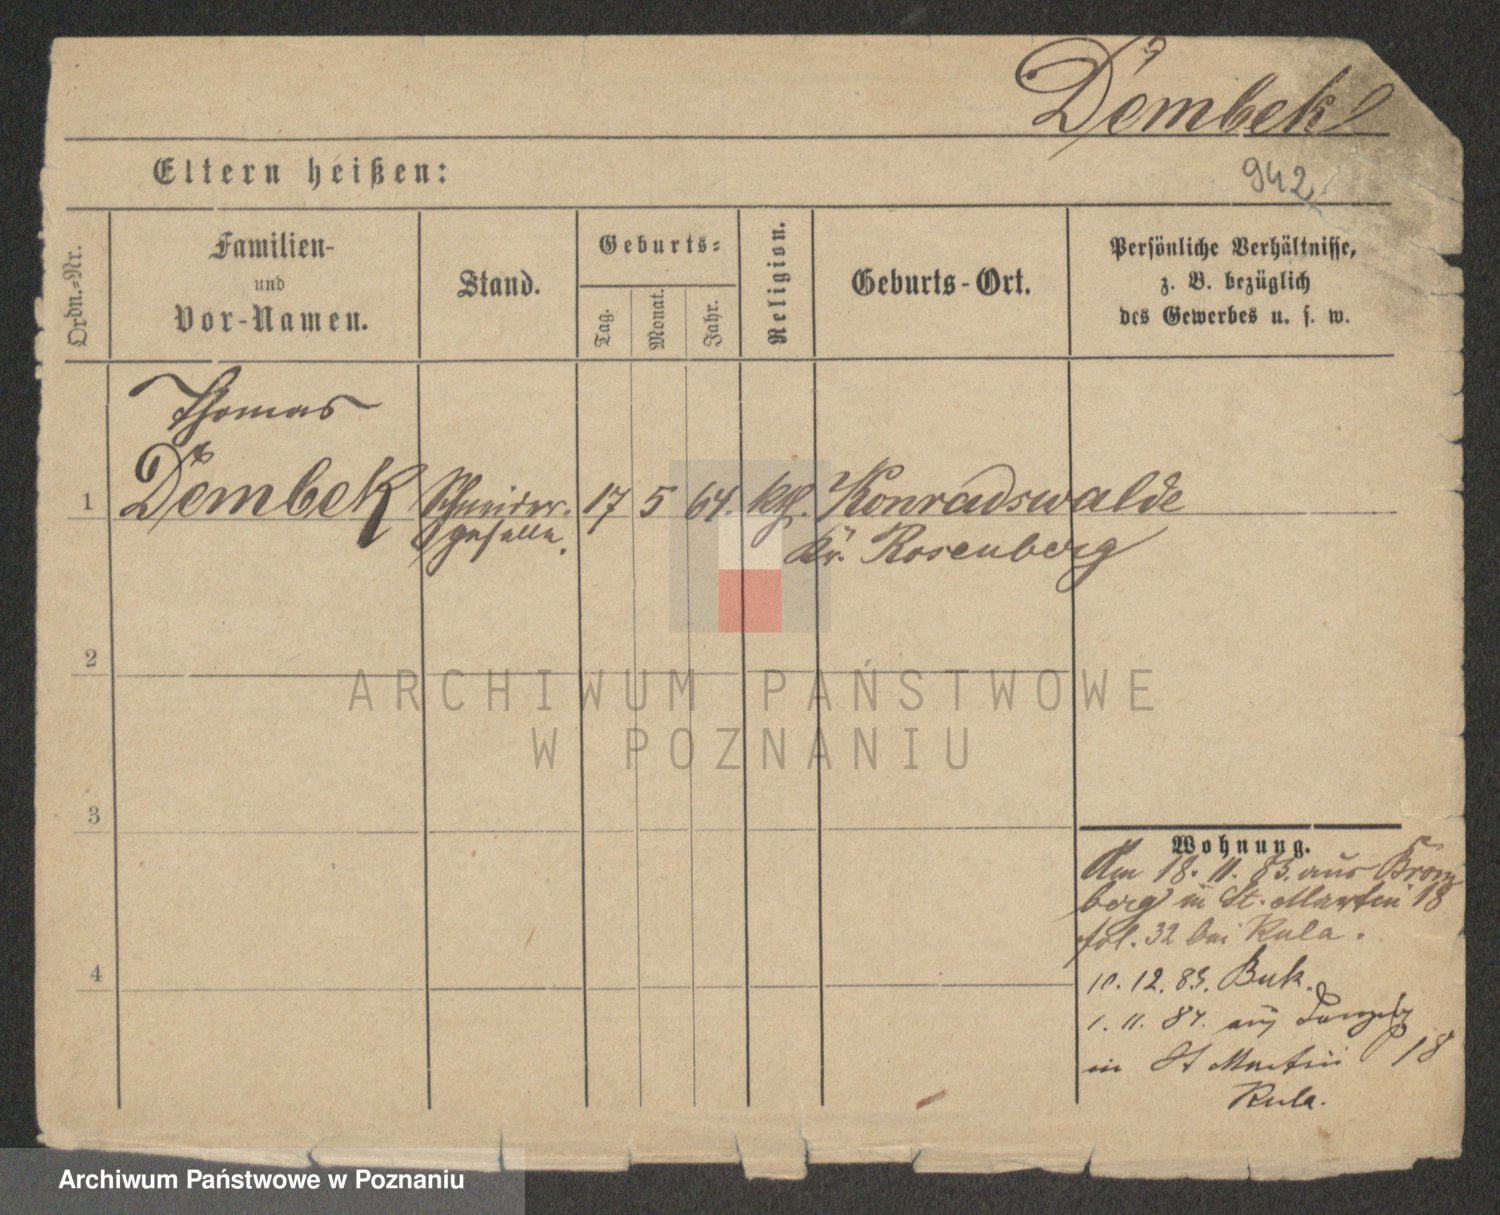 Dembek
942
Eltern heißen:
Ordn.-Nr.
Familien-
und
Vor-Namen.
Stand.
Geburts-
Tag.
Monat.
Jahr.
Religion.
Geburts-Ort.
Persönliche Verhältnisse,
z. B. bezüglich
des Gewerbes u. s. w.
Thomas
1 Dembek Schneider- 17 5 64. kth. Konradswalde
geselle. Kr. Rosenberg
2
ARCHIWUM PAŃSTWOWE
W POZNANIU
3
4
Wohnung.
Am 18. 11. 83. aus Brom
berg in St. Martin 18
fol. 32 bei Kula.
10. 12. 83. Buk.
1. 11. 84. aus
in St Martin 18
Kula.
Archiwum Państwowe w Poznaniu